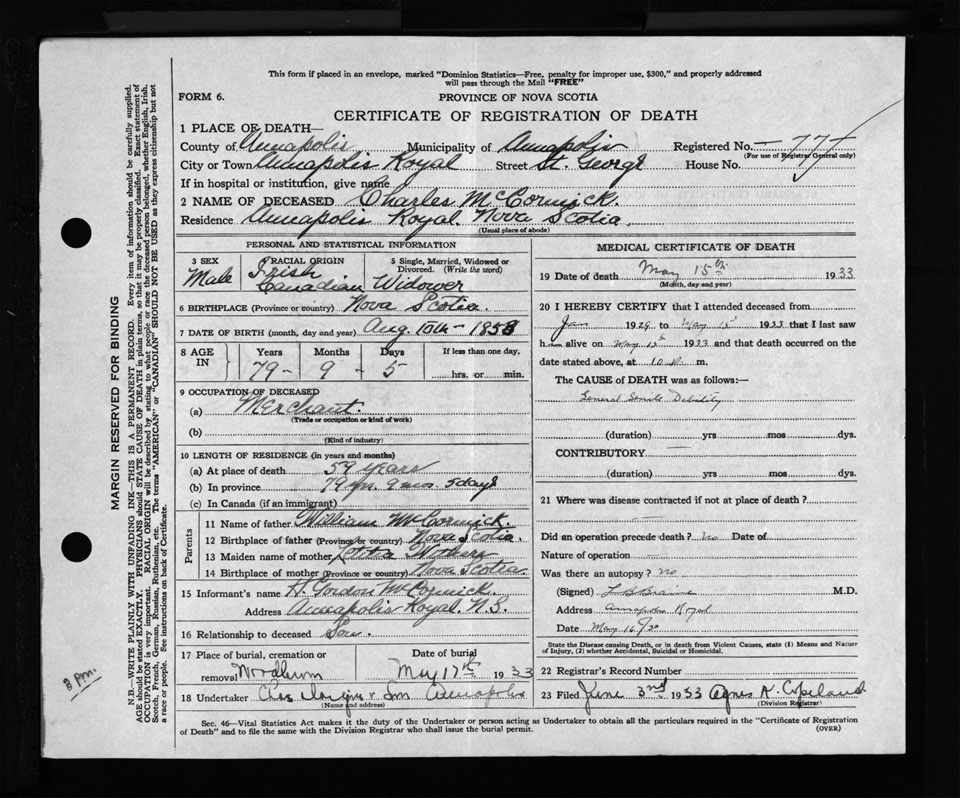 This form if placed in an envelope, marked "Dominion Statistics—Free, penalty for improper use, $300," and properly addressed
will pass through the Mail "FREE"
FORM 6.
PROVINCE OF NOVA SCOTIA
CERTIFICATE OF REGISTRATION OF DEATH
1 PLACE OF DEATH—
County of Annapolis Municipality of Annapolis Registered No.— 775
(For use of Registrar General only)
City or Town Annapolis Royal Street St. George House No.
If in hospital or institution, give name
2 NAME OF DECEASED Charles McCormick.
Residence Annapolis Royal Nova Scotia
(Usual place of abode)
PERSONAL AND STATISTICAL INFORMATION
3 SEX Male
RACIAL ORIGIN Irish Canadian
5 Single, Married, Widowed or Divorced. (Write the word) Widower
6 BIRTHPLACE (Province or country) Nova Scotia
7 DATE OF BIRTH (month, day and year) Aug 10th - 1853
8 AGE IN Years Months Days If less than one day,
79 - 9 - 5 hrs. or min.
9 OCCUPATION OF DECEASED
(a) Merchant.
(Trade or occupation or kind of work)
(b)
(Kind of industry)
10 LENGTH OF RESIDENCE (in years and months)
(a) At place of death 59 years
(b) In province 79 yrs. 9 mos. 5 days
(c) In Canada (if an immigrant)
Parents
11 Name of father William McCormick.
12 Birthplace of father (Province or country) Nova Scotia.
13 Maiden name of mother
14 Birthplace of mother (Province or country) Nova Scotia
15 Informant's name H. Gordon McCormick.
Address Annapolis Royal N.S.
16 Relationship to deceased Son.
17 Place of burial, cremation or removal Date of burial
May 17th 1933
18 Undertaker Son Annapolis
(Name and address)
MEDICAL CERTIFICATE OF DEATH
19 Date of death May 15th 1933
(Month, day and year)
20 I HEREBY CERTIFY that I attended deceased from
Jan 1929 to May 15 1933 that I last saw
him alive on May 1933 and that death occurred on the
date stated above, at 10 m.
The CAUSE of DEATH was as follows:—
General Senile Debility
(duration) yrs mos dys.
CONTRIBUTORY
(duration) yrs mos dys.
21 Where was disease contracted if not at place of death?
Did an operation precede death? no Date of
Nature of operation
Was there an autopsy? no
(Signed) L B Braine M.D.
Address Annapolis Royal
Date May 16/33
State the Disease causing Death, or in death from Violent Causes, state (1) Means and Nature
of Injury, (2) whether Accidental, Suicidal or Homicidal.
22 Registrar's Record Number
23 Filed June 3rd 1933 Agnes K. Copeland
(Division Registrar)
Sec. 46—Vital Statistics Act makes it the duty of the Undertaker or person acting as Undertaker to obtain all the particulars required in the "Certificate of Registration
of Death" and to file the same with the Division Registrar who shall issue the burial permit.
(OVER)
MARGIN RESERVED FOR BINDING
N.B.—WRITE PLAINLY WITH UNFADING INK—THIS IS A PERMANENT RECORD. Every item of information should be carefully supplied.
AGE should be stated EXACTLY. PHYSICIANS should STATE CAUSE OF DEATH in plain terms, so that it may be properly classified. Exact statement of
OCCUPATION is very important. RACIAL ORIGIN will be described by stating to what people or race the deceased person belonged, whether English, Irish,
Scotch, French, German, Russian, Ruthenian, etc. The terms "AMERICAN" or "CANADIAN" SHOULD NOT BE USED as they express citizenship but not
a race or people. See instructions on back of Certificate.
3 pm.